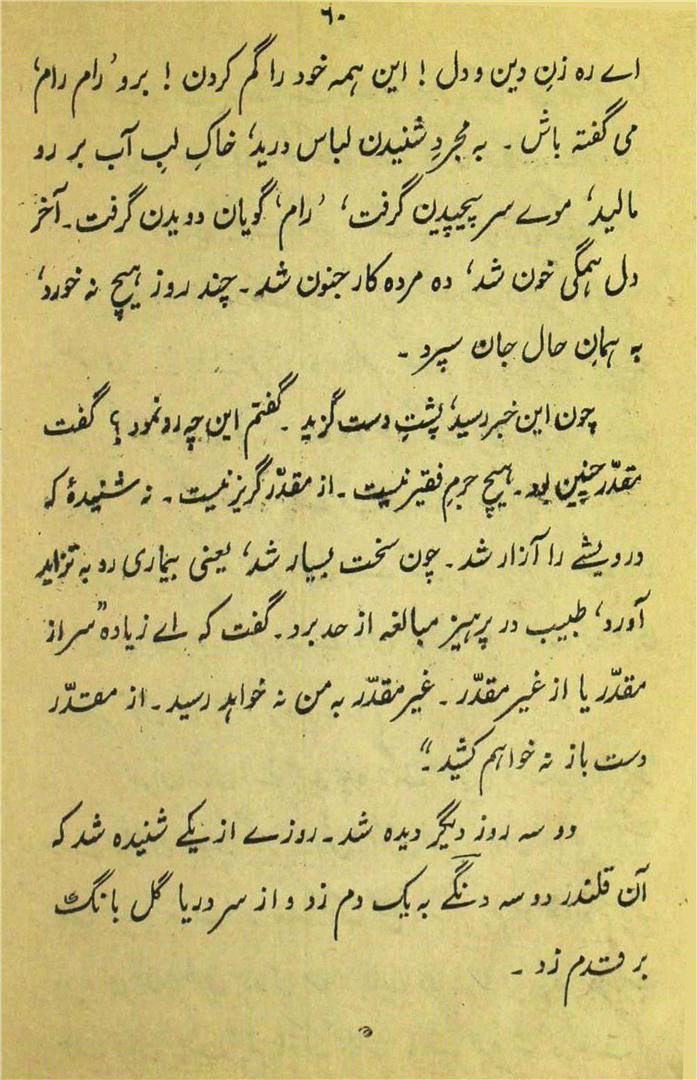 ۶۰
اے رہ زنِ دین و دل ! این ہمہ خود را گم کردن ! برو ’رام رام‘
می گفتہ باش ۔ بہ مجردِ شنیدن لباس درید، خاکِ لبِ آب بر رو
مالید، موے سر پیچیدن گرفت، ’رام‘ گویان دویدن گرفت۔ آخر
دل ہمگی خون شد، دہ مردہ کار جنون شد۔ چند روز ہیچ نہ خورد،
بہ ہمان حال جان سپرد ۔
چون این خبر رسید، پشتِ دست گزید ۔ گفتم این چہ رو نمود ؟ گفت
مقدّر چنین بود۔ ہیچ جرمِ فقیر نیست ۔ از مقدّر گریز نیست ۔ نہ شنیدۂ کہ
درویشے را آزار شد ۔ چون سخت بسیار شد، یعنی بیماری رو بہ تزاید
آورد، طبیب در پرہیز مبالغہ از حد برد ۔ گفت کہ اے زیادہ ”سر از
مقدّر یا از غیرِ مقدّر ۔ غیر مقدّر بہ من نہ خواہد رسید ۔ از مقدّر
دست باز نہ خواہم کشید ۔“
دو سہ روز دیگر دیدہ شد ۔ روزے از یکے شنیدہ شد کہ
آن قلندر دو سہ دنگے بہ یک دم زد و از سر دریا گل بانگ
بر قدم زد ۔